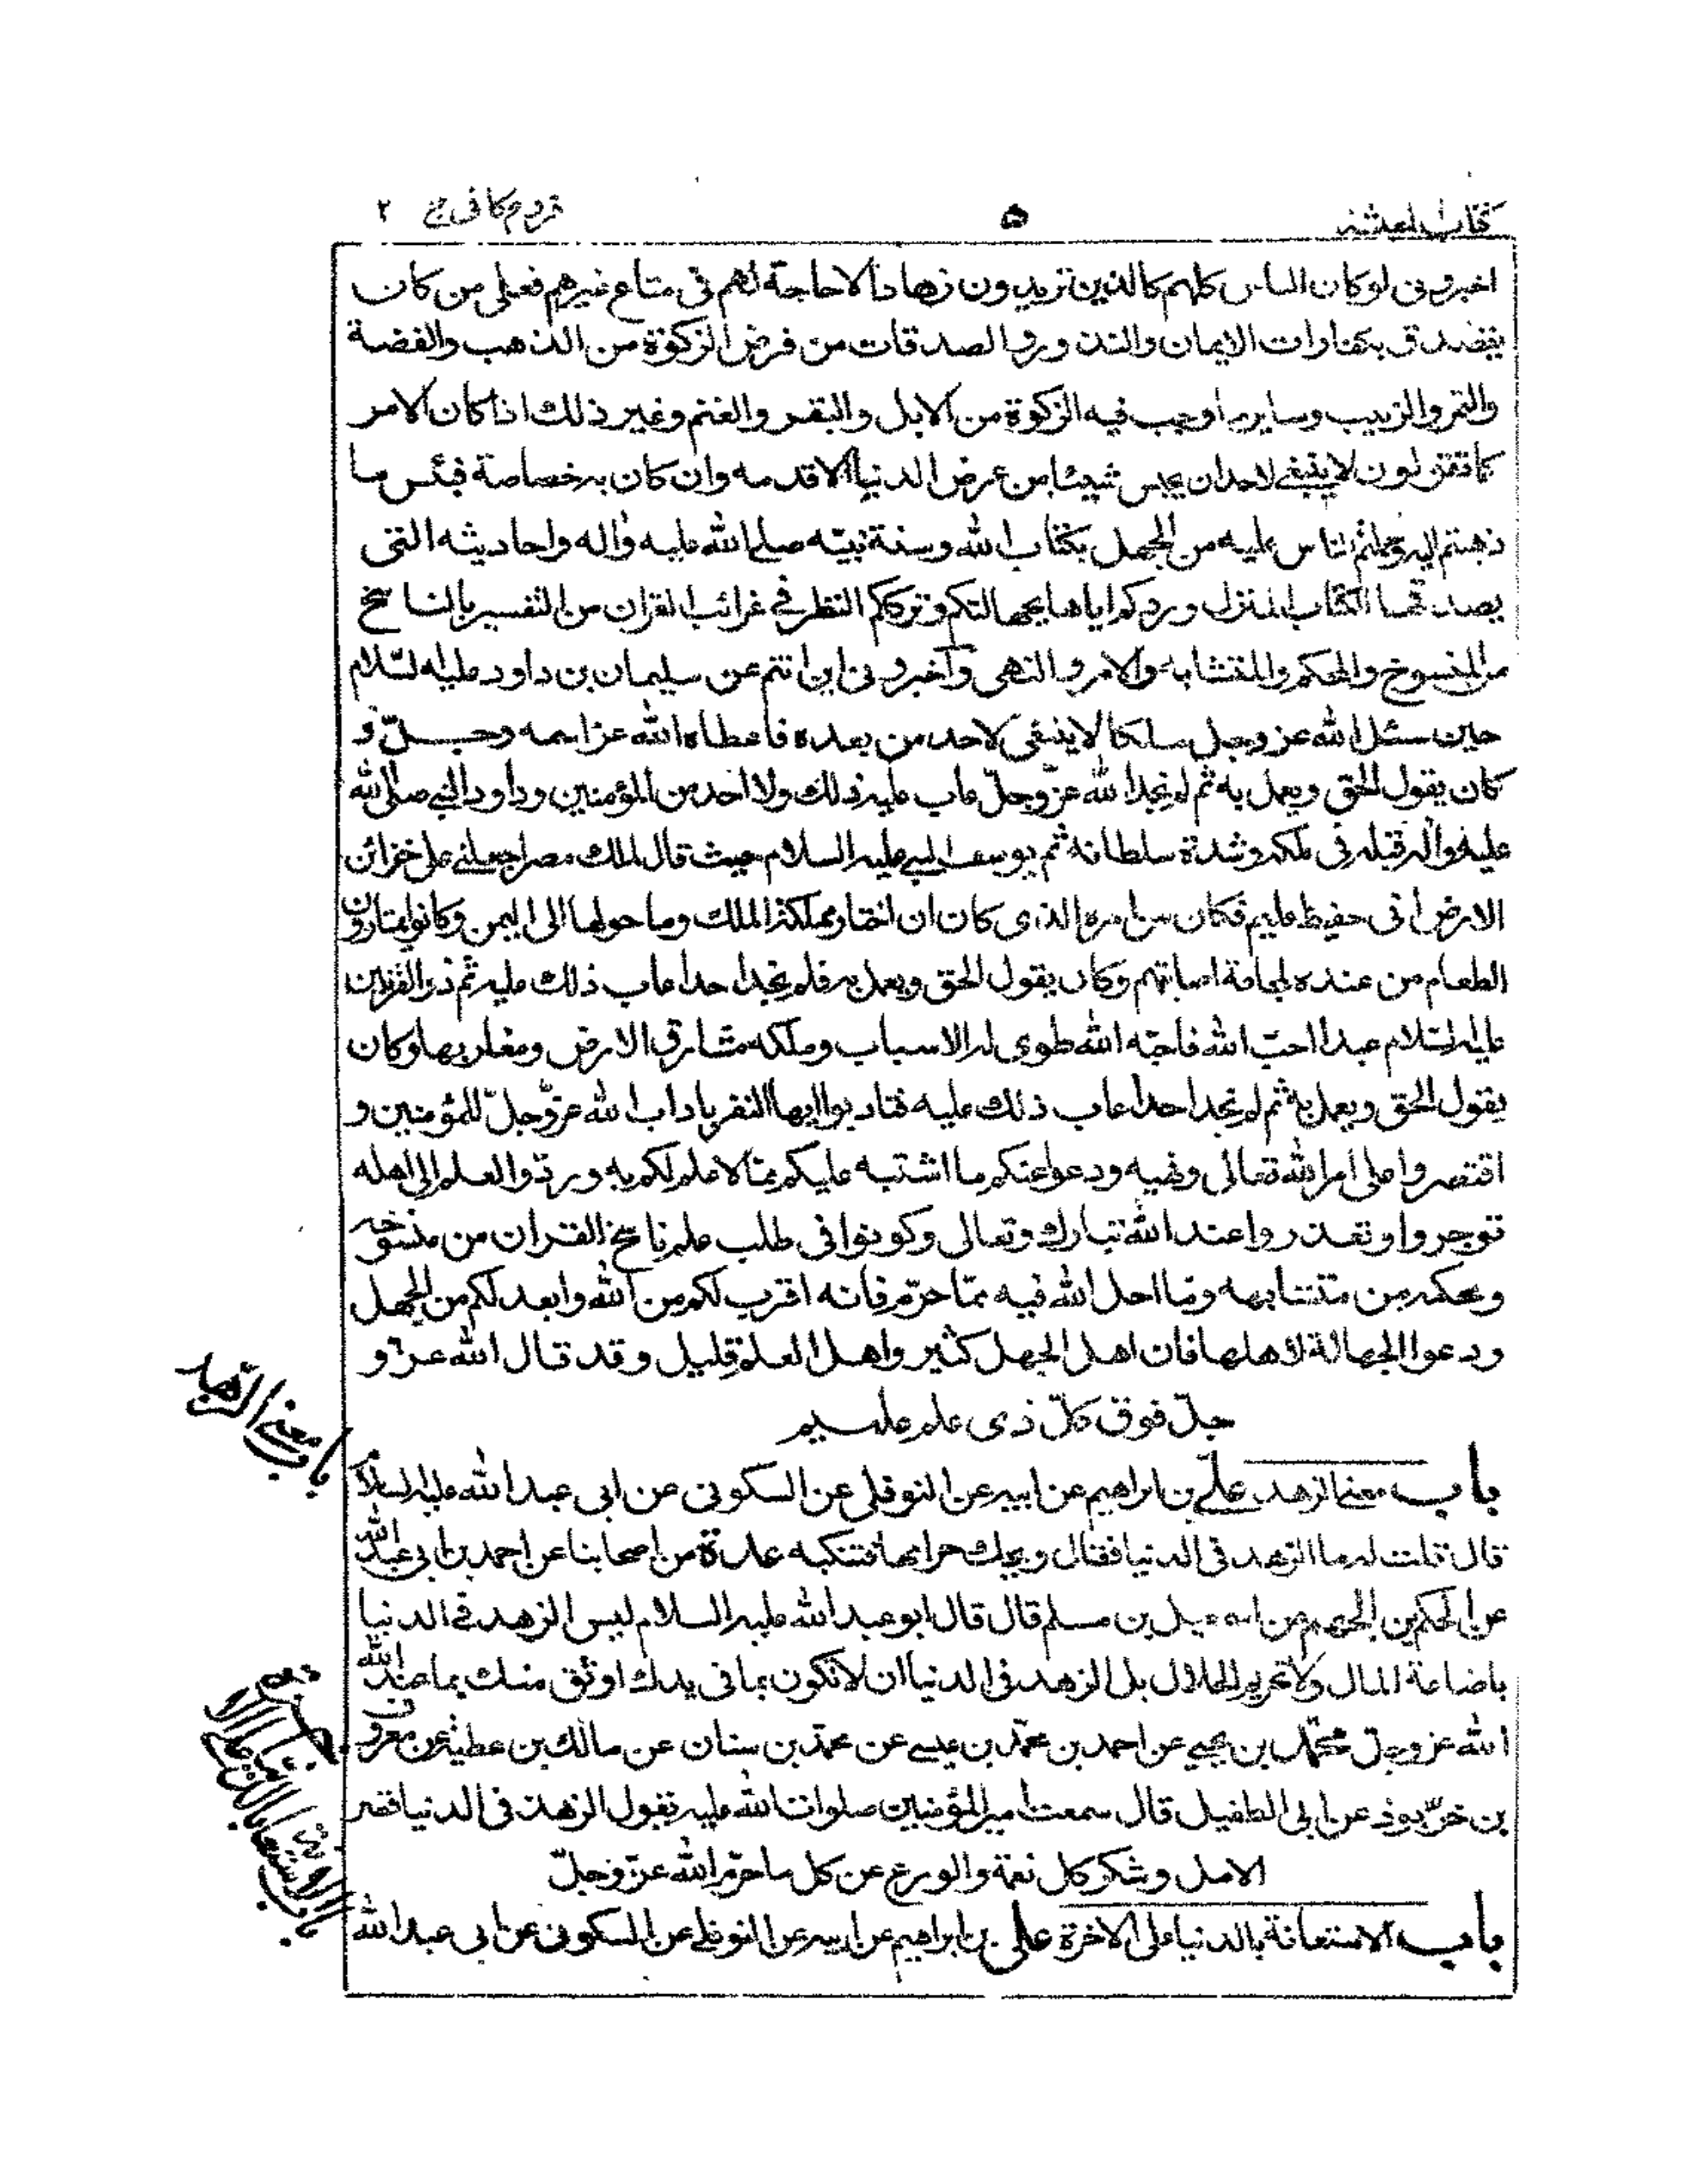 كتاب المعيشة
٥
فروع كافى ج ٢
اخبرونى لو كان الناس كلهم كالذين تريدون زهادا لا حاجة لهم فى متاع غيرهم فعلى من كان
يتصدق بكفارات الايمان والنذور والصدقات من فرض الزكوة من الذهب والفضة
والتمر والزبيب وساير ما وجب فيه الزكوة من الابل والبقر والغنم وغير ذلك اذا كان الامر
كما تقولون لا ينبغى لاحد ان يحبس شيئا من عرض الدنيا الا قدمه وان كان به خصاصة فبئس ما
ذهبتم اليه وحملتم الناس عليه من الجهل بكتاب الله وسنة نبيّه صلى الله عليه وآله واحاديثه التى
يصدقها الكتاب المنزل وردكم اياها بجهالتكم وترككم النظر فى غرائب القران من التفسير بالناسخ
من المنسوخ والمحكم والمتشابه والامر والنهى واخبرونى اين انتم عن سليمان بن داود عليه السّلام
حين سئل الله عز وجل ملكا لا ينبغى لاحد من بعده فاعطاه الله عز اسمه وجلّ و
كان يقول الحق ويعمل به ثم لم نجد الله عزّ وجلّ عاب عليه ذلك ولا احد من المؤمنين وداود النبى صلى الله
عليه وآله قبله فى ملكه وشدة سلطانه ثم يوسف النبى عليه السلام حيث قال لملك مصر اجعلنى على خزائن
الارض انى حفيظ عليم فكان من امره الذى كان ان اختار مملكة الملك وما حولها الى اليمن وكانوا يمتارون
الطعام من عنده لمجاعة اصابتهم وكان يقول الحق ويعمل به فلم نجد احدا عاب ذلك عليه ثم ذو القرنين
عليه السّلام عبد احبّ الله فاحبّه الله طوى له الاسباب وملكه مشارق الارض ومغاربها وكان
يقول الحق ويعمل به ثم لم نجد احدا عاب ذلك عليه فتادبوا ايها النفر باداب الله عزّ وجلّ للمؤمنين و
اقتصروا على امر الله تعالى ونهيه ودعوا عنكم ما اشتبه عليكم ممّا لا علم لكم به وردّوا العلم الى اهله
توجروا وتعذروا عند الله تبارك وتعالى وكونوا فى طلب علم ناسخ القران من منسوخه
ومحكمه من متشابهه وما احل الله فيه ممّا حرّم فانه اقرب لكم من الله وابعد لكم من الجهل
ودعوا الجهالة لاهلها فان اهل الجهل كثير واهل العلم قليل وقد قال الله عزّ و
جلّ فوق كلّ ذى علم عليم
باب معنى الزهد على بن ابراهيم عن ابيه عن النوفلى عن السكونى عن ابى عبد الله عليه السلام
قال قلت له ما الزهد فى الدنيا فقال ويحك حرامها فتنكبه عدة من اصحابنا عن احمد بن ابى عبد الله
عن الحكم بن الجهم عن اسمعيل بن مسلم قال قال ابو عبد الله عليه السلام ليس الزهد فى الدنيا
باضاعة المال ولا تحريم الحلال بل الزهد فى الدنيا ان لا تكون بما فى يدك اوثق منك بما عند الله
الله عز وجل محمّد بن يحيى عن احمد بن محمّد بن عيسى عن محمّد بن سنان عن مالك بن عطية عن معروف
بن خرّبوذ عن ابى الطفيل قال سمعت امير المؤمنين صلوات الله عليه يقول الزهد فى الدنيا قصر
الامل وشكر كل نعمة والورع عن كل ما حرّم الله عزّ وجلّ
باب الاستعانة بالدنيا على الاخرة على بن ابراهيم عن ابيه عن النوفلى عن السكونى عن ابى عبد الله
باب معنى الزهد
باب الاستعانة بالدنيا على الاخرة